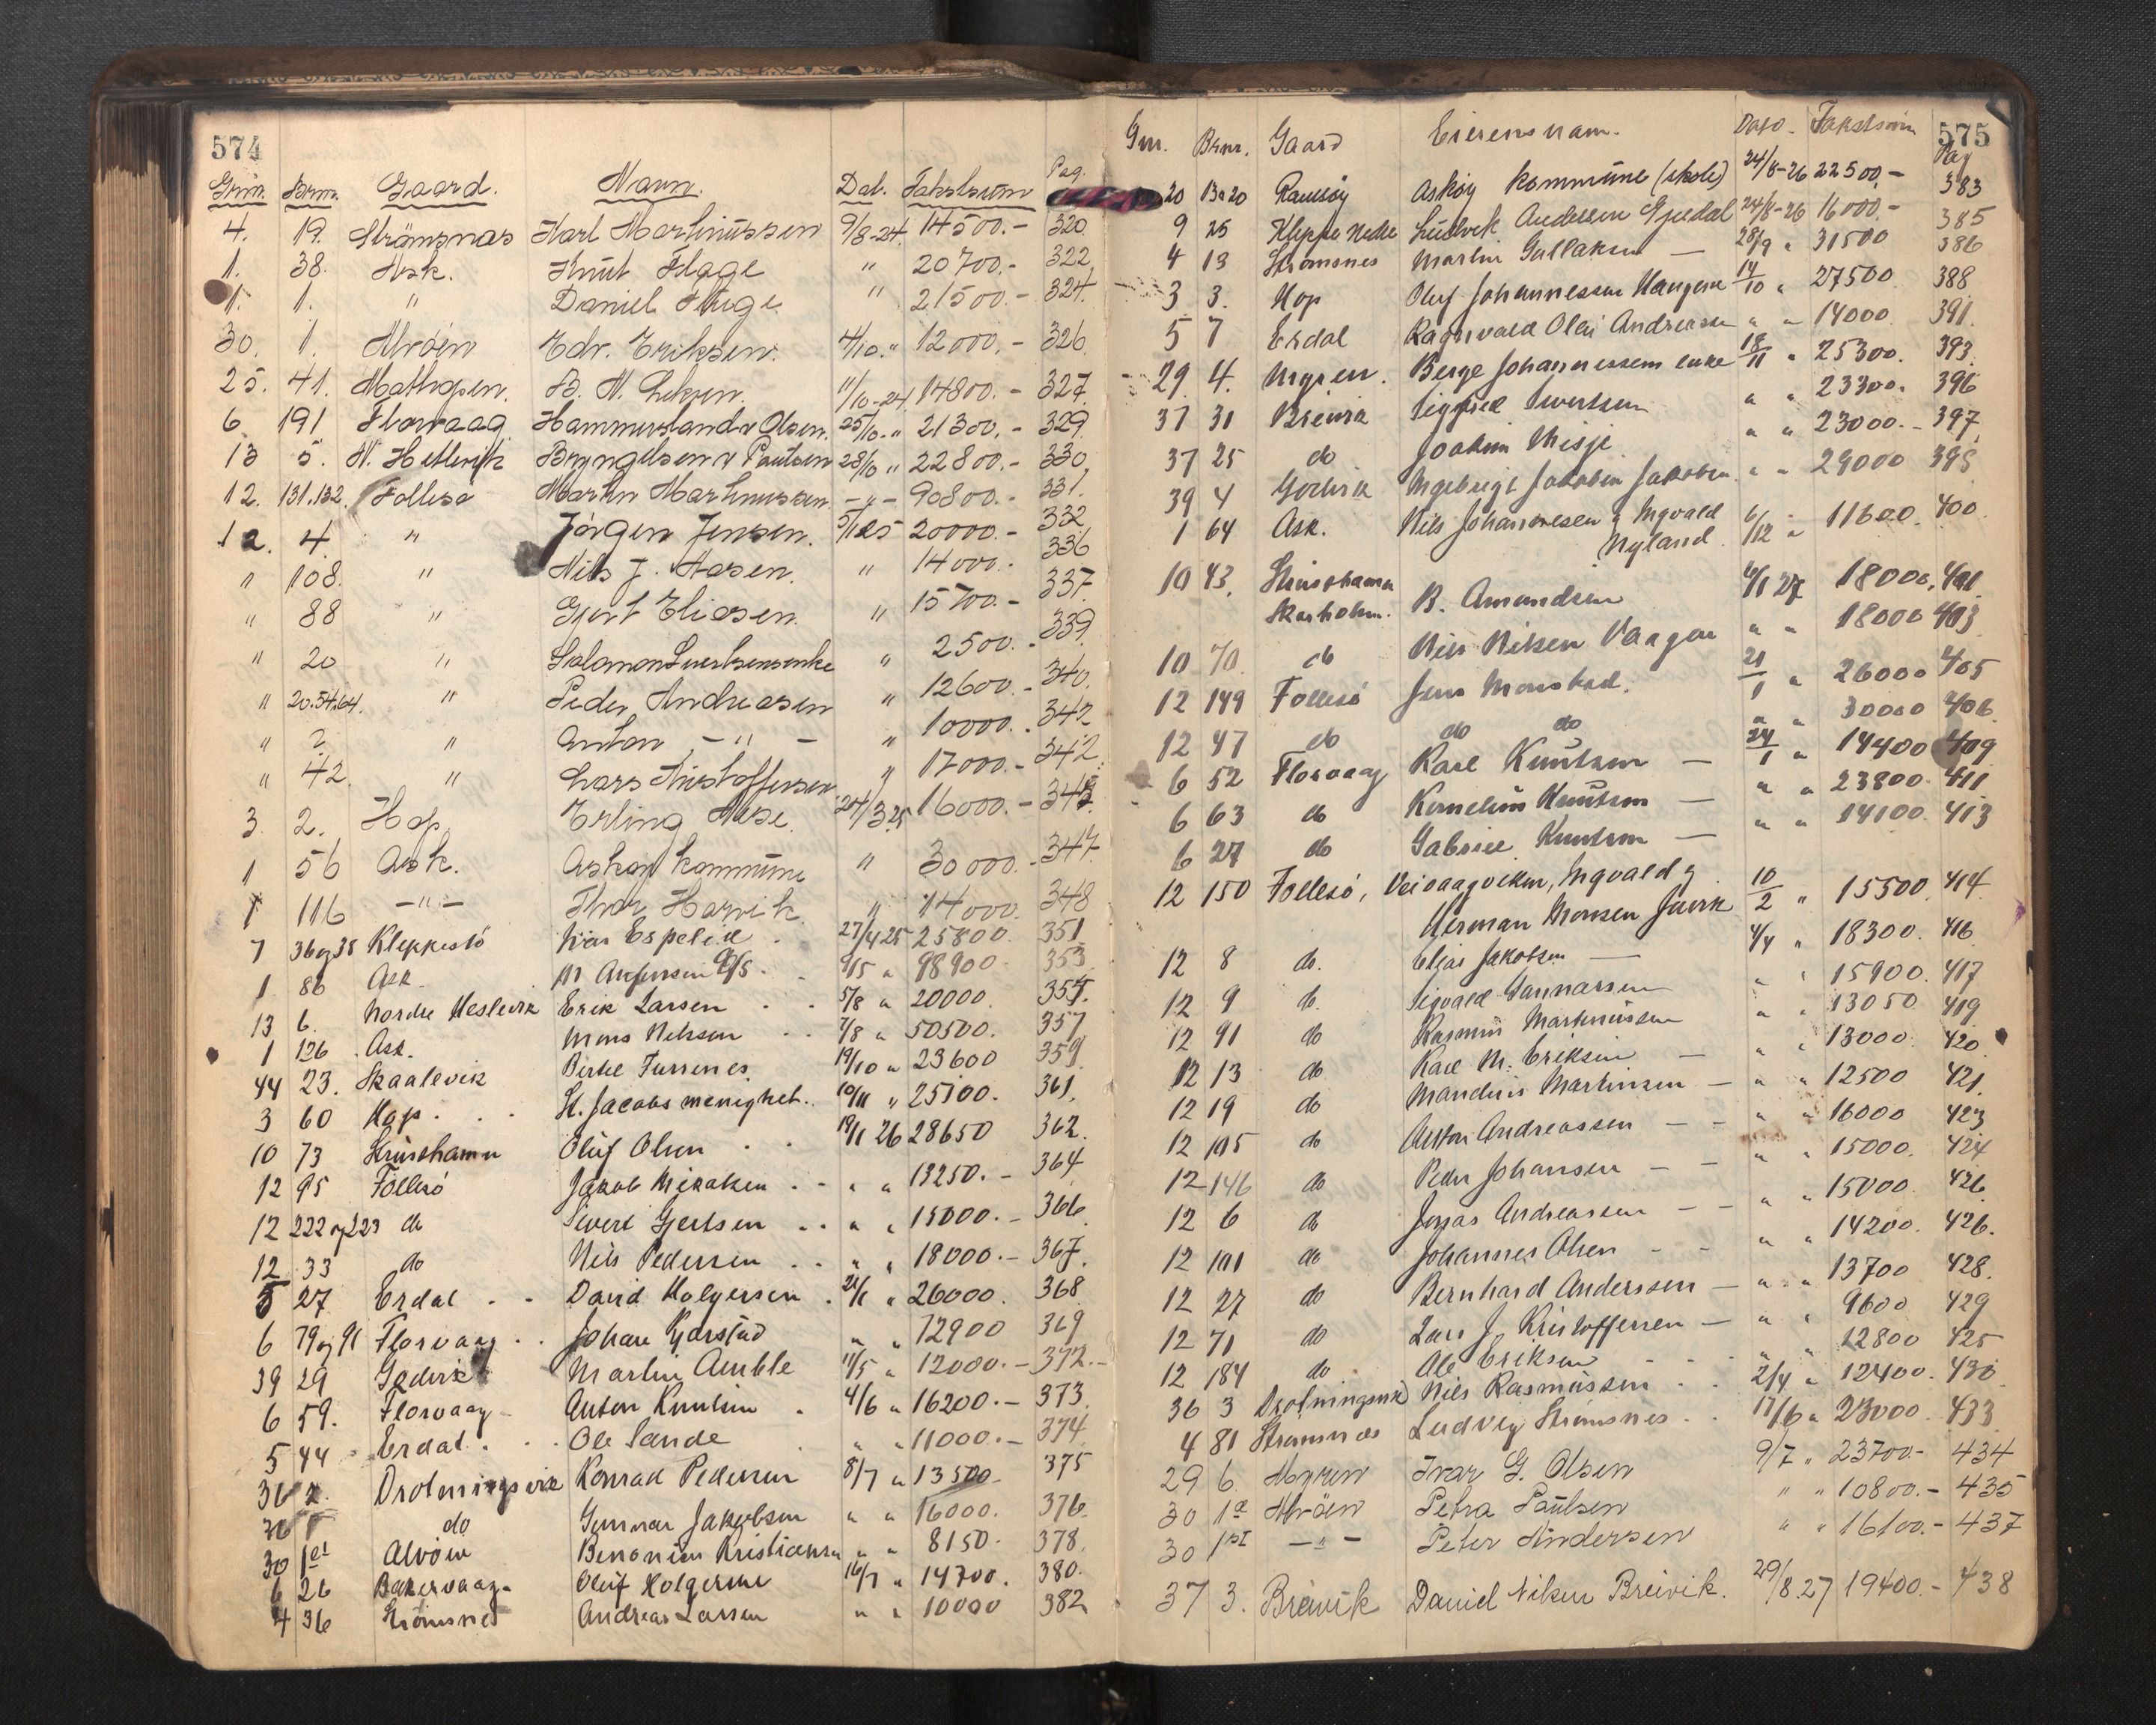 574
Gnr. Brnr. Gaard. Navn. Dat. Takstsum Pag.
4. 19. Strømsnæs Karl Martinussen 9/8-24. 14500.- 320
1. 38. Ask. Knut Hage " 20700.- 322
1. 1. " Daniel " 21500.- 324.
30. 1. Alvøen Edv. Eriksen. 4/10." 12000.- 326.
25. 41. Mathopen. B. N. 11/10-24 14800.- 327.
6. 191 Florvaag Hammersland & Olsen. 25/10." 21300.- 329
13 5. N. Hetlevik Bryngelsen & Paulsen 28/10 " 22800.- 330
12. 131.132. Follesø Martin Martinussen -"- 90800.- 331.
12. 4. " Jørgen Jensen. 5/1 25 20000.- 332
" 108. " Nils J. Aasen. " 14000.- 336
" 88 " Gjert Eliasen. " 15700.- 337.
" 20 " Salomon Sivertsens enke " 2500.- 339.
" 20.54.64. " Peder Andreasen " 12600.- 340.
" ? " Anton -"- " 10000.- 342
" 42. " Lars Kristoffersen " 17000.- 342.
3. 2. Hop. Erling 24/3 25 16000.- 345.
1 56 Ask. Askøy kommune " 30000.- 347.
1 116 -"- Thor Harvik " 14000. 348
7 36og38 Kleppestø Ivar Espelid. 27/4 25 25800. 351
1 86 Ask. A/S. 9/5 " 98900. 353
13 6. Nordre Hetlevik Erik Larsen 5/8 " 20000. 355.
1 126 Ask. Mons Nilsen 7/8 " 50500. 357
44 23. Skaalevik Bertel Furrenes 19/10 " 23600 359.
3 60 Hop. St. Jacobs menighet. 10/11 " 25100. 361.
10 73 Strusshamn Oluf Olsen 19/1 26 28650 362.
12 95 Follesø Jakob Mikalsen " " 13250.- 364
12 222 og 223 do Sivert Gjertsen " " 15000.- 366
12 33 do Nils Pedersen " " 18000.- 367.
5 27 Erdal David Holgersen 21/1 " 26000. 368
6 79 og 91 Florvaag Johan Gjerstad " " 12900 369
39 29 Godvik Martin Amble 11/5 " 12000.- 372.-
6 59. Florvaag Anton Knutsen 4/6 " 16200.- 373.
5 44 Erdal. Ole Sande " " 11000.- 374.
36 2. Drotningsvik Konrad Pedersen 8/7 " 13500 375
36 do Gunnar Jakobsen " " 16000. 376.
30 1 Alvøen Benonien Kristiansen " " 8150. 378.
6 26 Bakervaag Oluf Holgersen 16/7 " 14700. 380.
4 36 Strømsnes Andreas Larsen " " 10000 382
575
Gnr. Brnr. Gaard Eierens navn. Dato. Takstsum Pag
20 13a20 Ramsøy Askøy kommune (skole) 24/8-26 22500.- 383
9 25 Kleppe Nedre Ludvik Andersen Gjerdal 24/8-26 16000.- 385
4 13 Strømsnes Martin Gullaksen - 28/9 " 31500 386
3 3. Hop Oluf Johannessen Haugene 14/10 " 27500. 388
5 7 Erdal Ragnvald Olai Andreassen " " 14000. 391.
29 4. Myren. Berge Johannessens enke 18/11 " 25300. 393.
37 31 Breivik Sigfred Sivertsen " " 23300. 396
37 25 do Joakim Misje " " 23000.- 397
39 4 Godvik Ingebrigt Jakobsen Jakobsen " " 29000 398
1 64 Ask. Nils Johannesen & Ingvald Myland. 6/12 " 11600. 400
10 43. Strusshamn Skarholm. B. Amundsen 4/1 27 18000. 401.
10 70. do Nils Nilsen Vaagen " " 18000 403
12 149 Follesø Jens Monstad. 21/1 " 26000 405
12 47 do do do " " 30000 406
6 52 Florvaag Karl Knutsen - 24/1 " 14400 409
6 63 do Kornelius Knutsen - " " 23800 411
6 27 do Gabriel Knutsen - " " 14100. 413
12 150 Follesø, Veivaagviken, Ingvald & Herman Monsen Juvik 10/2 " 15500. 414
12 8 do. Elias Jakobsen - 4/4 " 18300. 416
12 9 do. Sigvald Gunnarsen " " 15900. 417
12 91 do Rasmus Martinussen " " 13050 419
12 13 do Karl M. Eriksen - " " 13000. 420.
12 19 do Mandius Martinsen - " " 12500 421.
12 105 do Anton Andreassen - - " " 16000 423
12 146 do Peder Johansen - - " " 15000. 424
12 6 do Jonas Andreassen - - " " 15000 426.
12 101 do Johannes Olsen - - " " 14200. 426.
12 27 do Bernhard Anderssen - " " 13700 428.
12 71 do Lars J. Kristoffersen - " " 9600 429
12 184 do Ole Eriksen - - " " 12800 425
36 3 Drotningsvik Nils Rasmussen 2/4 " 12400. 430
4 81 Strømsnæs Ludvig Strømsnes. 17/6 " 23000 433
29 6. Myren Ivar G. Olsen 9/7 " 23700.- 434
30 1a Alvøen Petra Paulsen " " 10800.- 435
30 1 -"- Peter Andersen " " 16100.- 437
37 3. Breivik Daniel Nilsen Breivik. 29/8.27 19400.- 438